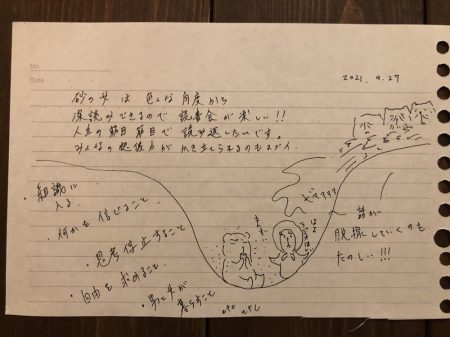 No.
Date
2021. 9.27
砂の女は 色んな角度から
深読みできるので 読書会が楽しい!!
人生の節目節目で 読み返したいです。
みんなの想像力が かき立てられるのもスゴイ
・組織に
入る
・何かを信じること
・思考停止すること
・自由を求めること
・男と女が
暮らすこと
etc etc
ザザザザザ
話が
脱線していくのも
たのしい!!!